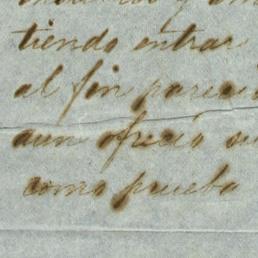 tiendo entrar
al fin pareció
aun ofreció su
como prueba